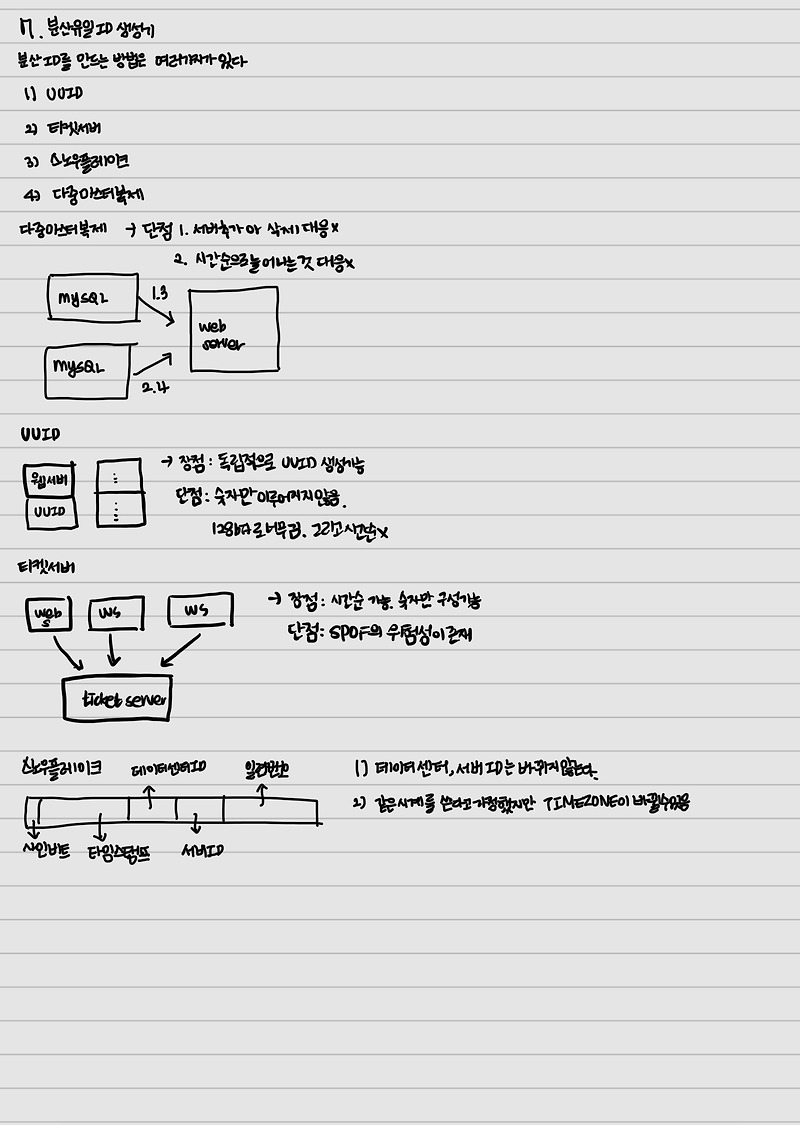 7. 분산유일ID 생성기
분산ID를 만드는 방법은 여러가지가 있다
1) UUID
2) 티켓서버
3) 스노우플레이크
4) 다중마스터복제
다중마스터복제 → 단점 1. 서버추가 아 삭제 대응x
2. 시간순으로 늘어나는 것 대응x
mySQL
1.3
web
server
mySQL
2.4
UUID
웹서버
UUID
→ 장점: 독립적으로 UUID 생성가능
단점: 숫자만 이루어지지않음.
128bit로 너무큼. 그리고 시간순x
티켓서버
web
s
ws
ws
ticket server
→ 장점: 시간순 가능. 숫자만 구성가능
단점: SPOF의 위험성이 존재
스노우플레이크
데이터센터ID
일련번호
사인비트
타임스탬프
서버ID
1) 데이터센터, 서버ID는 바뀌지않는다.
2) 같은시계를 쓴다고가정했지만 TIMEZONE이 바뀔수있음